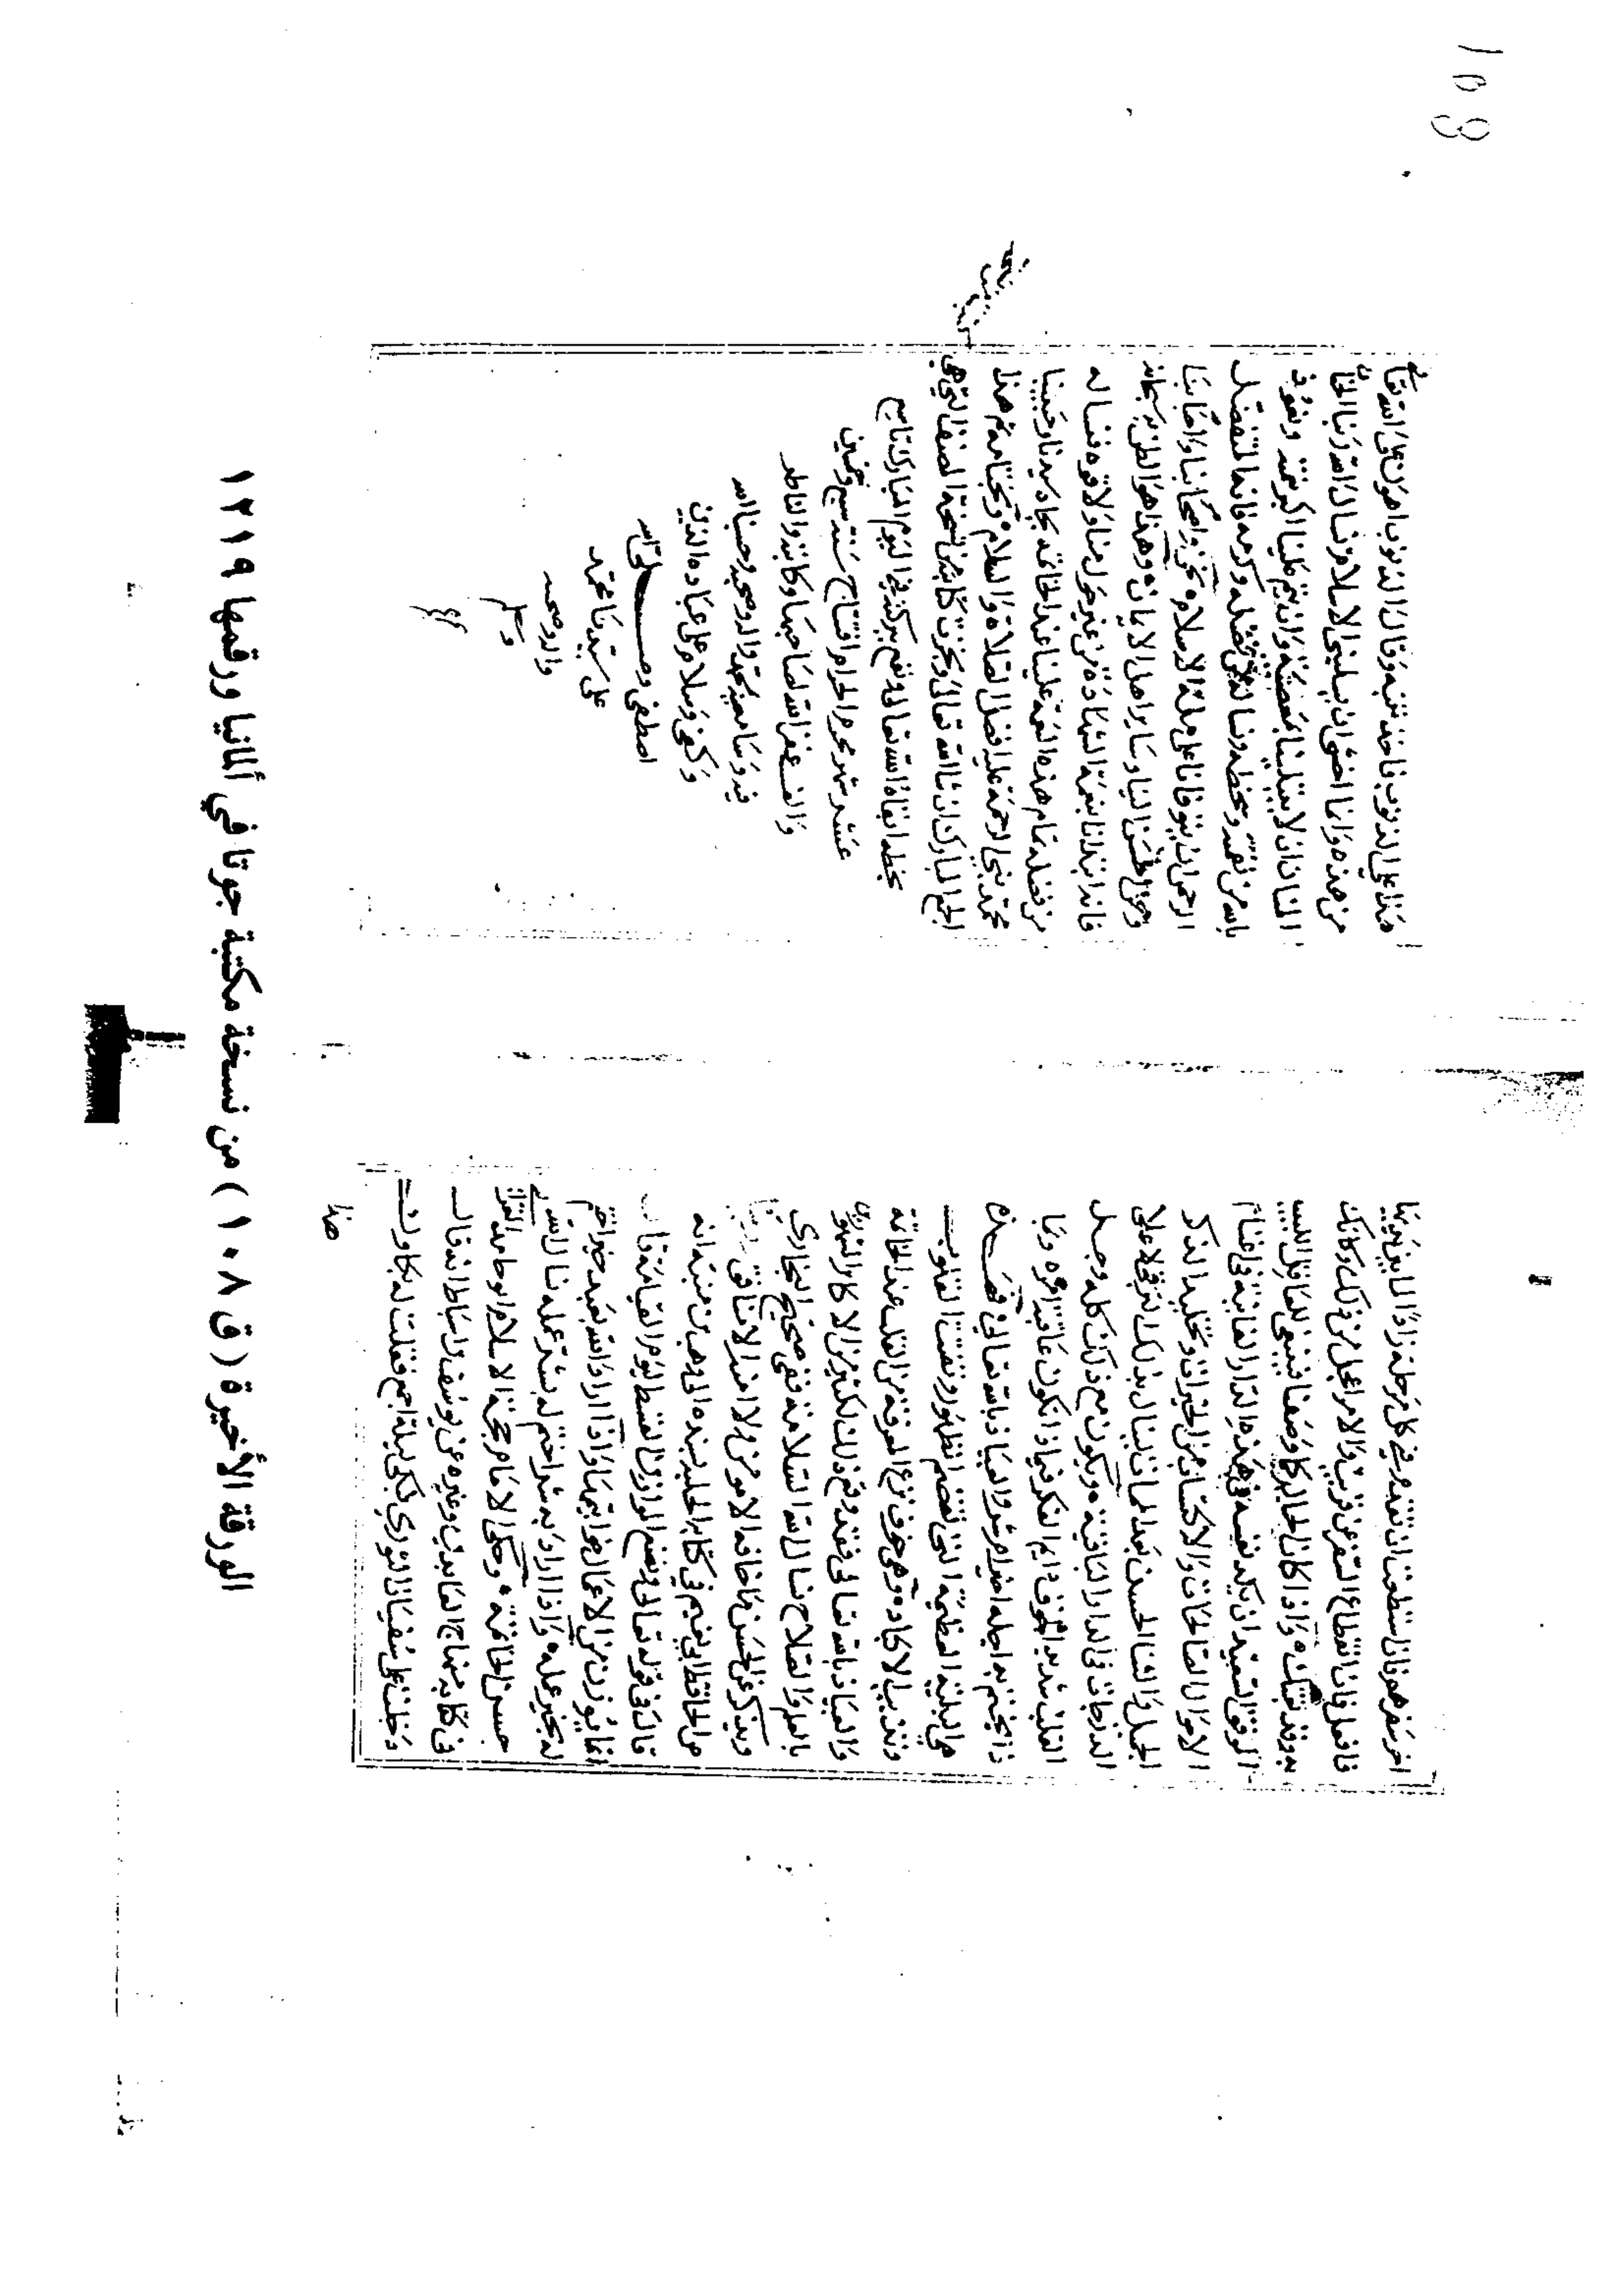 اخر سفر هو فان استطعت ان تقدم في كل مرحلة زادا لما بين يديها
فافعل فان انقطاع السفر عن قريب والامر اعجل من ذلك وكانك
به وقد بغتك واذا كان الحال كما وصفنا فينبغي للعاقل اللبيب
الموفق السعيد ان يكد نفسه في هذه الدار الفانية في اغتنام
الاحوال الصالحات والاكتساب من الخيرات وتخليد الذكر
الجميل والثنا الحسن بعد الممات لينال بذلك الترقي لاعلى
الدرجات في الدار الباقية ويكون مع ذلك كله وجل
القلب شديد الخوف دايم الفكر فيما ذا تكون عاقبة امره وبما
ذا يختم به اجله اخير ام شر والعياذ بالله تعالى فهذه
هي البلية العظيمة التي تقصم الظهور وتفتت القلوب
وتذيب الاكباد وهي خوف نزع المعرفة من القلب عند الخاتمة
والعياذ بالله تعالى فقد وقع ذلك لكثير من الاكابر المشهورين
بالعلم والصلاح نسال الله السلامة ففي صحيح البخاري
ويذكر عن الحسن ما خافه الا مومن ولا امنه الا منافق
عن الحافظ ابي نعيم في كتابه الحلية بسنده الى وهب بن منبه انه
قال في قوله تعالى ونضع الموازين القسط ليوم القيامة قال
انما يوزن من الاعمال خواتيمها واذا اراد الله بعبد خيرا ختم
له بخير عمله واذا اراد به شرا ختم له بشر عمله نسال الله
حسن الخاتمة وحكى الامام حجة الاسلام ابو حامد الغزالي
في كتابه منهاج العابدين وغيره عن يوسف بن اسباط انه قال
دخلت على سفيان الثوري فبكى ليلة اجمع فقلت له بكاوك
هذا
هذا على الذنوب فاخذ تبنة وقال الذنوب اهون على الله تعالى
من هذه وانما اخشى ان يسلبني الاسلام نسال الله ربنا الحنان
المنان ان لا يبتلينا بمعصيته وان يتم علينا اكبر نعمته ونعوذ
بالله من نقمته وسخطه ونساله من فضله وكرمه فانه المتفضل
الرحمن ان يتوفانا على ملة الاسلام نحن واصحابنا واحبابنا
ومن احسن الينا وساير اهل الايمان وهذا هو الظن به سبحانه
فانه ابتدانا بنعمة الشهادة من غير حول منا ولا قوه فنساله
من فضله تمام هذه النعمة علينا عند الخاتمة بجاه سيدنا ونبينا
محمد نبي الرحمة عليه افضل الصلاة والسلام وبختامه تم هذا
الجمع المبارك ان شا الله تعالى ونجزت كتابته من نسخة المصنف التي هي
بخطه ابقاه الله تعالى ونفع ببركته في اليوم المبارك تاسع
عشر شهر محرم الحرام افتتاح سنة سبع وخمسين
والف غفر الله لصاحبها وكاتبه والناظر
فيه وسامعيه بمحمد واله وصحبه وحسبنا الله
وكفى وسلام على عباده الذين
اصطفى وصلى الله
على سيدنا محمد
واله وصحبه
وسلم
الورقة الأخيرة ( ق ١٠٨ ) من نسخة مكتبة جوتا في ألمانيا ورقمها ١٢١٩